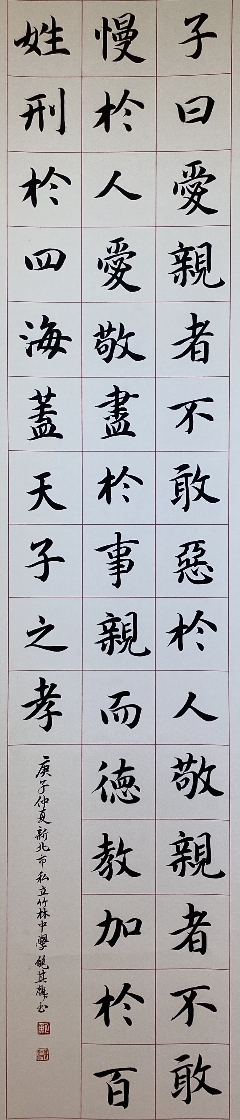 子曰愛親者不敢惡於人敬親者不敢
慢於人愛敬盡於事親而德教加於百
姓刑於四海蓋天子之孝
庚子仲夏新北市私立竹林中學